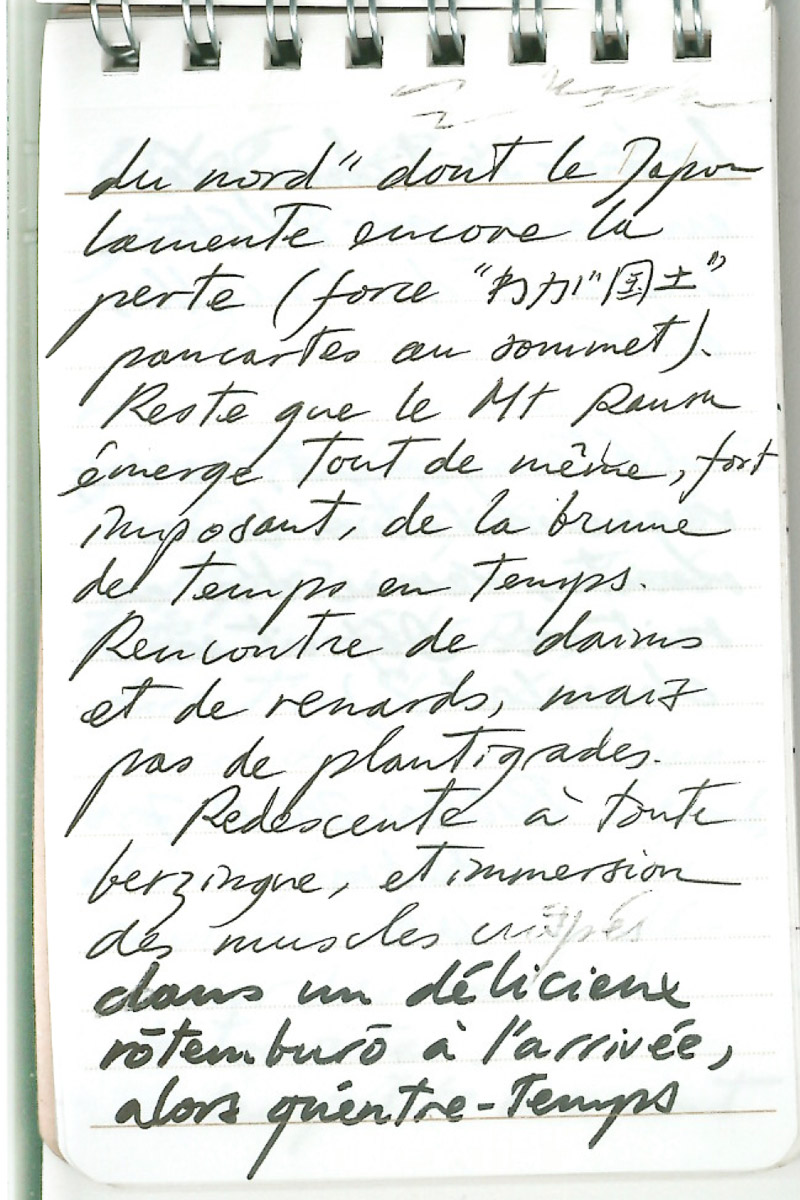 du nord" dont le Japon
lamente encore la
perte (force "わが国土"
pancartes au sommet).
Reste que le Mt Rausu
émerge tout de même, fort
imposant, de la brume
de temps en temps.
Rencontre de daims
et de renards, mais
pas de plantigrades.
Redescente à toute
berzingue, et immersion
des muscles crispés
dans un délicieux
rōtemburō à l'arrivée,
alors qu'entre-temps